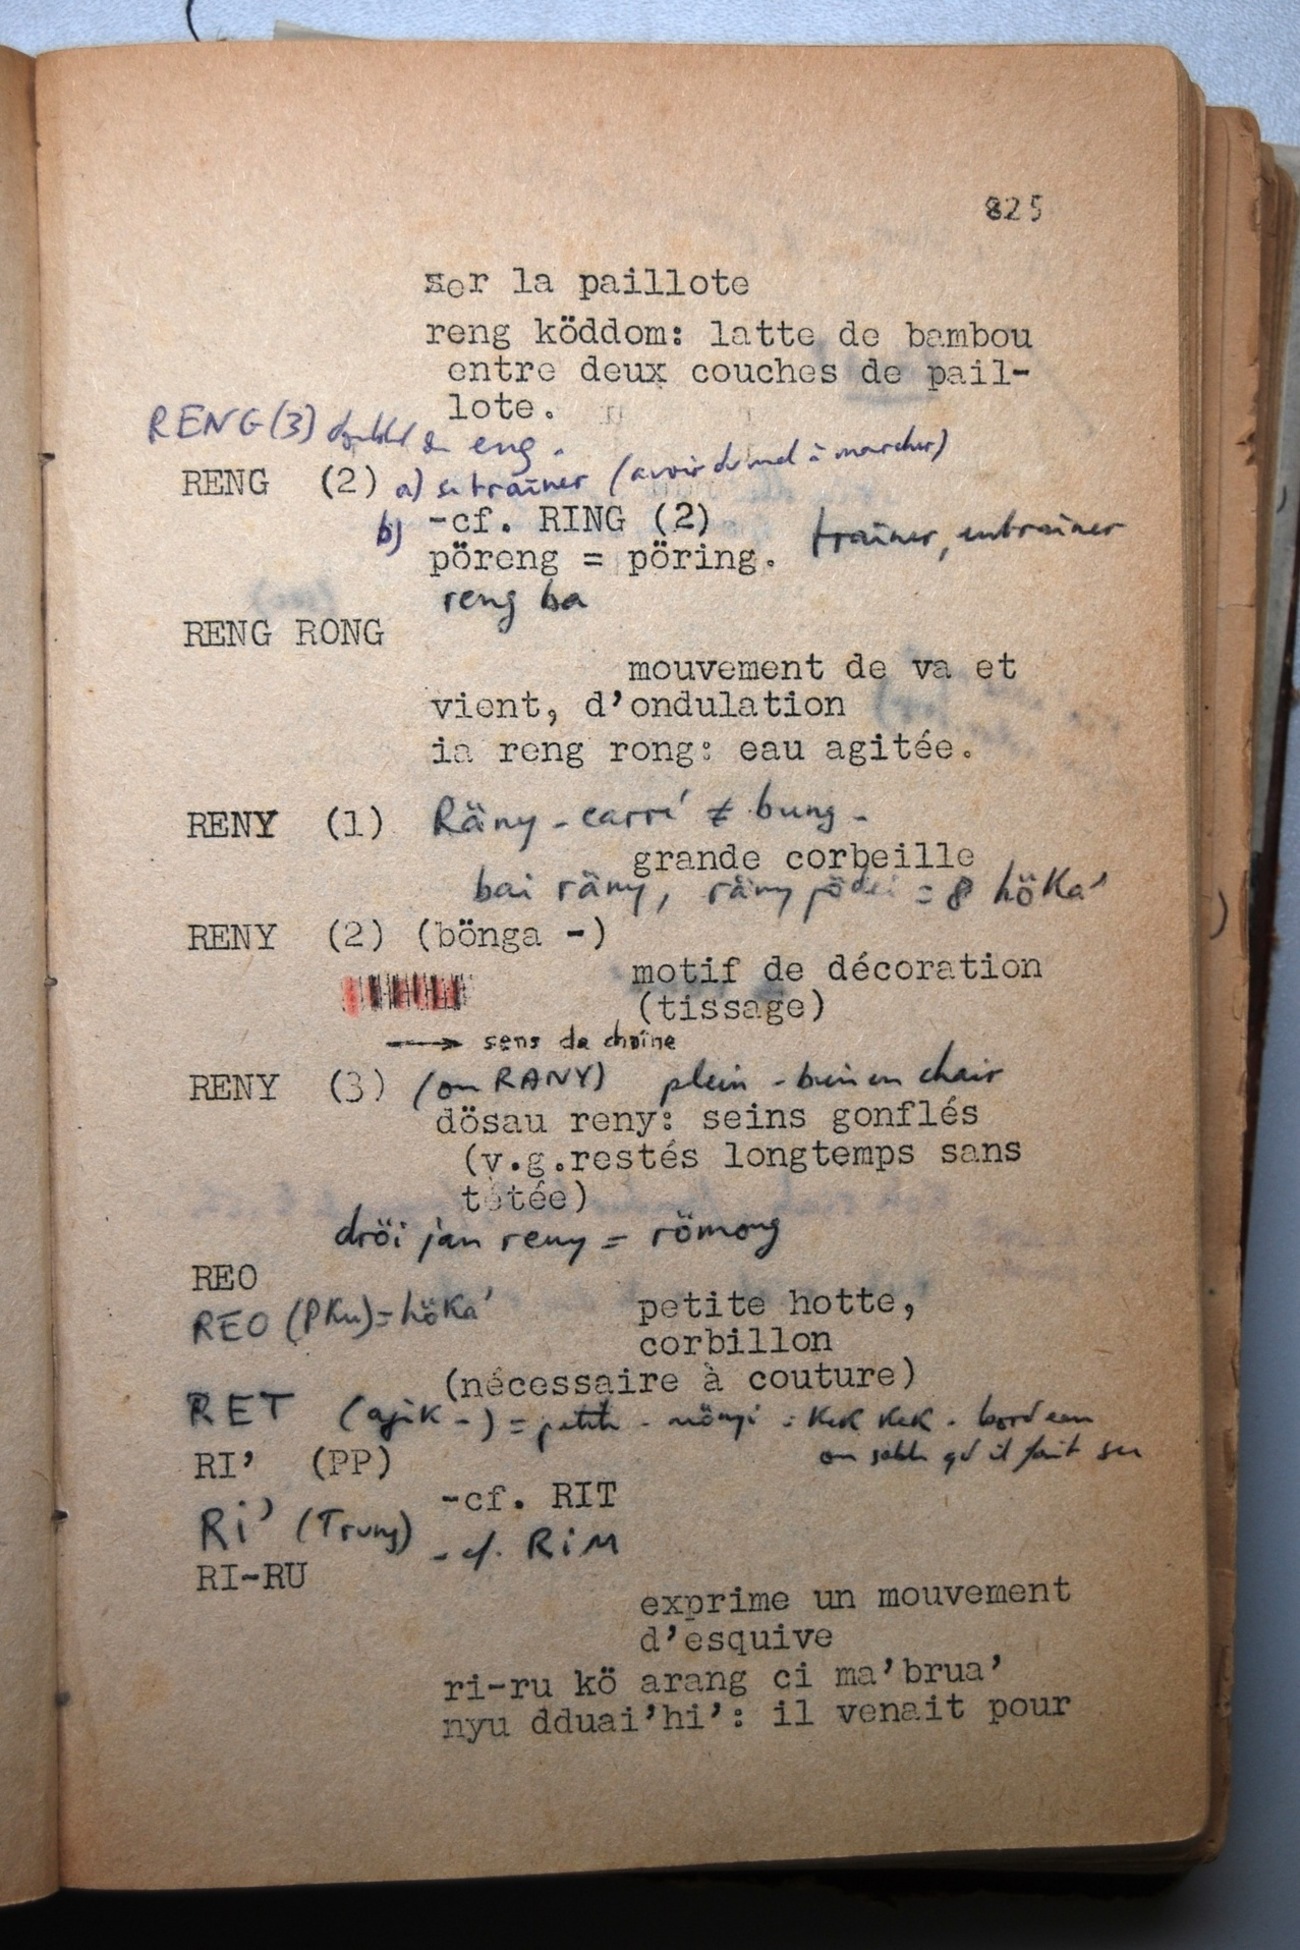 825
ser la paillote
reng köddom: latte de bambou
entre deux couches de pail-
lote.
RENG (3) doublet de eng.
RENG (2) a) se traîner (avoir du mal à marcher)
b) -cf. RING (2)
pöreng = pöring. traîner, entraîner
reng ba
RENG RONG
mouvement de va et
vient, d'ondulation
ia reng rong: eau agitée.
RENY (1) Räny - carré ≠ bung -
grande corbeille
bai räny, räny pödei = 8 höka'
RENY (2) (bönga -)
motif de décoration
(tissage)
→ sens de chaîne
RENY (3) (ou RANY) plein - bien en chair
dösau reny: seins gonflés
(v.g.restés longtemps sans
tétée)
dröi jan reny = römong
REO
REO (PKu) = höKa'
petite hotte,
corbillon
(nécessaire à couture)
RET (ajik -) = petite - = KeK KeK - bord eau
ou sable qd il fait
RI' (PP)
-cf. RIT
Ri' (Trung) - cf. RiM
RI-RU
exprime un mouvement
d'esquive
ri-ru kö arang ci ma'brua'
nyu dduai'hi': il venait pour